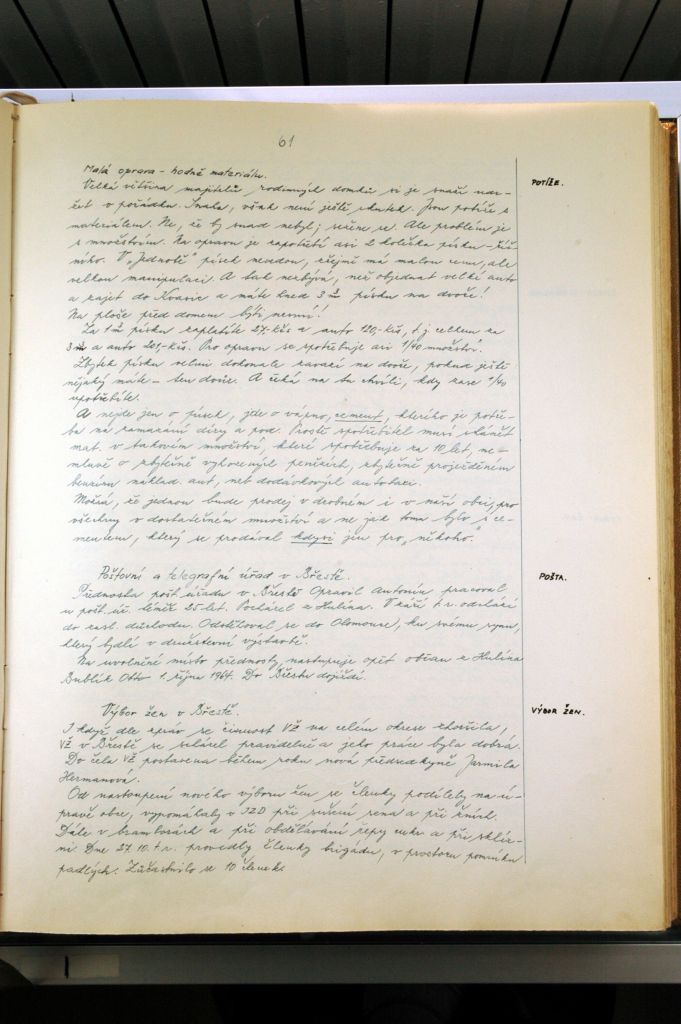 61
Malá oprava - hodně materiálu.
POTÍŽE.
Velká většina majitelů rodinných domků si je snaží udr-
žet v pořádku. Snaha, však není ještě skutek. Jsou potíže s
materiálem. Ne, že by snad nebyl, sežene se. Ale problém je
s množstvím. Na opravu je zapotřebí asi 2 kolečka písku - říč-
ního. V „Jednotě" písek nevedou, zřejmě má malou cenu, ale
velkou manipulaci. A tak nezbývá, než objednat velké auto
a zajet do Kvasic a máte hned 3 m písku na dvoře!
Na ploše před domem býti nesmí!
Za 1 m písku zaplatíte 27,- Kčs a auto 120,- Kčs, t.j. celkem za
3 m a auto 201,- Kčs. Pro opravu se spotřebuje asi 1/40 množství.
Zbytek písku velmi dokonale zavazí na dvoře, pokud ještě
nějaký máte - ten dvůr. A čeká na tu chvíli, kdy zase 1/40
upotřebíte.
A nejde jen o písek, jde o vápno, cement, kterého je potře-
ba na zamazání díry a pod. Prostě spotřebitel musí shánět
mat. v takovém množství, které spotřebuje za 10 let, ne-
mluvě o zbytečně vyhozených penězích, zbytečně projezděném
benzinu náklad. aut, neb dodávkových autotaxi.
Možná, že jednou bude prodej v drobném i v naší obci, pro
všechny v dostatečném množství a ne jak tomu bylo s ce-
mentem, který se prodával kdysi jen pro „někoho."
Poštovní a telegrafní úřad v Břestě.
POŠTA.
Přednosta pošt. úřadu v Břestě Opravil Antonín, pracoval
u pošt. úř. téměř 25 let. Pocházel z Hulína. V září t.r. odchází
do zasl. důchodu. Odstěhoval se do Olomouce, ku svému synu,
který bydlí v družstevní výstavbě.
Na uvolněné místo přednosty, nastupuje opět občan z Hulína
Bublík Otto 1. října 1964. Do Břestu dojíždí.
Výbor žen v Břestě.
VÝBOR ŽEN.
I když dle zpráv se činnost VŽ na celém okrese zhoršila,
VŽ v Břestě se scházel pravidelně a jeho práce byla dobrá.
Do čela VŽ postavena během roku nová předsedkyně Jarmila
Hermanová.
Od nastoupení nového výboru žen se členky podílely na ú-
pravě obce, vypomáhaly v JZD při sušení sena a při žních.
Dále v bramborách a při obdělávání řepy cukr. a při sklíz-
ni. Dne 27.10. t.r. provedly členky brigádu, v prostoru pomníku
padlých. Zúčastnilo se 10 členek.